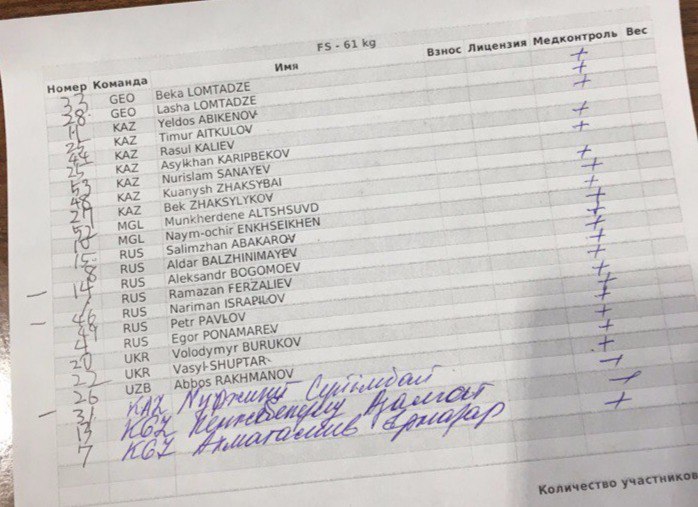 FS - 61 kg
Номер Команда Имя Взнос Лицензия Медконтроль Вес
33 GEO Beka LOMTADZE +
38 GEO Lasha LOMTADZE +
11 KAZ Yeldos ABIKENOV +
KAZ Timur AITKULOV
44 KAZ Rasul KALIEV +
25 KAZ Asylkhan KARIPBEKOV +
53 KAZ Nurislam SANAYEV
48 KAZ Kuanysh ZHAKSYBAI +
27 KAZ Bek ZHAKSYLYKOV +
52 MGL Munkherdene ALTSHSUVD +
18 MGL Naym-ochir ENKHSEIKHEN +
15 RUS Salimzhan ABAKAROV +
8 RUS Aldar BALZHINIMAYEV +
14 RUS Aleksandr BOGOMOEV +
RUS Ramazan FERZALIEV
46 RUS Nariman ISRAPILOV +
RUS Petr PAVLOV +
4 RUS Egor PONAMAREV +
20 UKR Volodymyr BURUKOV +
22 UKR Vasyl SHUPTAR +
26 UZB Abbos RAKHMANOV +
31 KAZ
13 KGZ Азамат
7 KGZ +
Количество участников